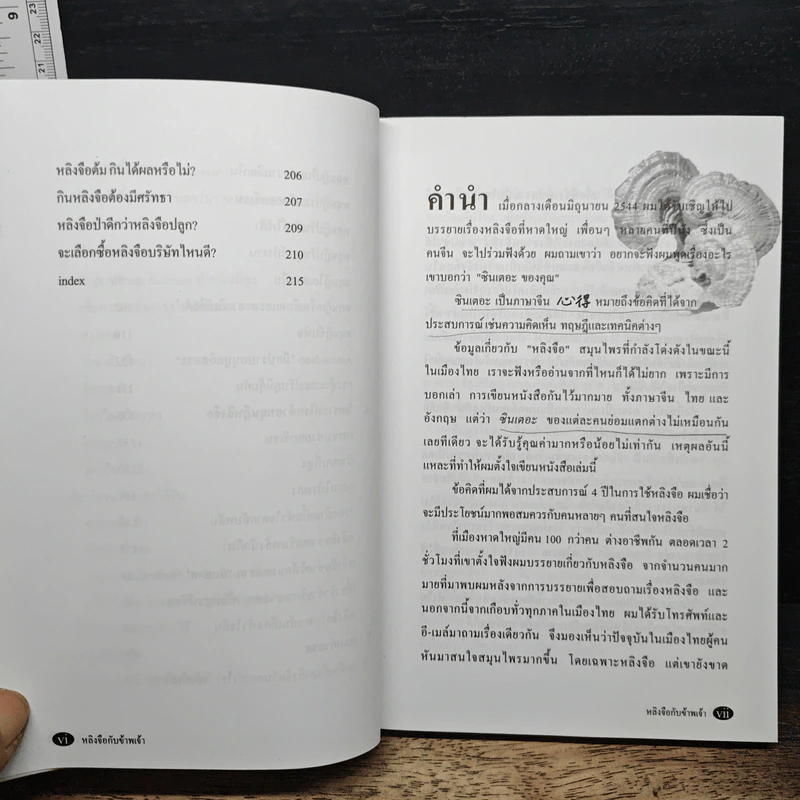 9
23
22
21
หลิงจือต้ม กินได้ผลหรือไม่? 206
กินหลิงจือต้องมีศรัทธา 207
หลิงจือป่าดีกว่าหลิงจือปลูก? 209
จะเลือกซื้อหลิงจือบริษัทไหนดี? 210
index 215
vi หลิงจือกับข้าพเจ้า
คำนำ เมื่อกลางเดือนมิถุนายน 2544 ผมได้รับเชิญให้ไป
บรรยายเรื่องหลิงจือที่หาดใหญ่ เพื่อนๆ หลายคนที่ปีนัง ซึ่งเป็น
คนจีน จะไปร่วมฟังด้วย ผมถามเขาว่า อยากจะฟังผมพูดเรื่องอะไร
เขาบอกว่า "ซินเตอะ ของคุณ"
ซินเตอะ เป็นภาษาจีน 心得 หมายถึงข้อคิดที่ได้จาก
ประสบการณ์ เช่นความคิดเห็น ทฤษฎีและเทคนิคต่างๆ
ข้อมูลเกี่ยวกับ "หลิงจือ" สมุนไพรที่กำลังโด่งดังในขณะนี้
ในเมืองไทย เราจะฟังหรืออ่านจากที่ไหนก็ได้ไม่ยาก เพราะมีการ
บอกเล่า การเขียนหนังสือกันไว้มากมาย ทั้งภาษาจีน ไทย และ
อังกฤษ แต่ว่า ซินเตอะ ของแต่ละคนย่อมแตกต่างไม่เหมือนกัน
เลยทีเดียว จะได้รับรู้คุณค่ามากหรือน้อยไม่เท่ากัน เหตุผลอันนี้
แหละที่ทำให้ผมตั้งใจเขียนหนังสือเล่มนี้
ข้อคิดที่ผมได้จากประสบการณ์ 4 ปีในการใช้หลิงจือ ผมเชื่อว่า
จะมีประโยชน์มากพอสมควรกับคนหลายๆ คนที่สนใจหลิงจือ
ที่เมืองหาดใหญ่มีคน 100 กว่าคน ต่างอาชีพกัน ตลอดเวลา 2
ชั่วโมงที่เขาตั้งใจฟังผมบรรยายเกี่ยวกับหลิงจือ จากจำนวนคนมาก
มายที่มาพบผมหลังจากการบรรยายเพื่อสอบถามเรื่องหลิงจือ และ
นอกจากนี้จากเกือบทั่วทุกภาคในเมืองไทย ผมได้รับโทรศัพท์และ
อี-เมล์มาถามเรื่องเดียวกัน จึงมองเห็นว่าปัจจุบันในเมืองไทยผู้คน
หันมาสนใจสมุนไพรมากขึ้น โดยเฉพาะหลิงจือ แต่เขายังขาด
หลิงจือกับข้าพเจ้า vii